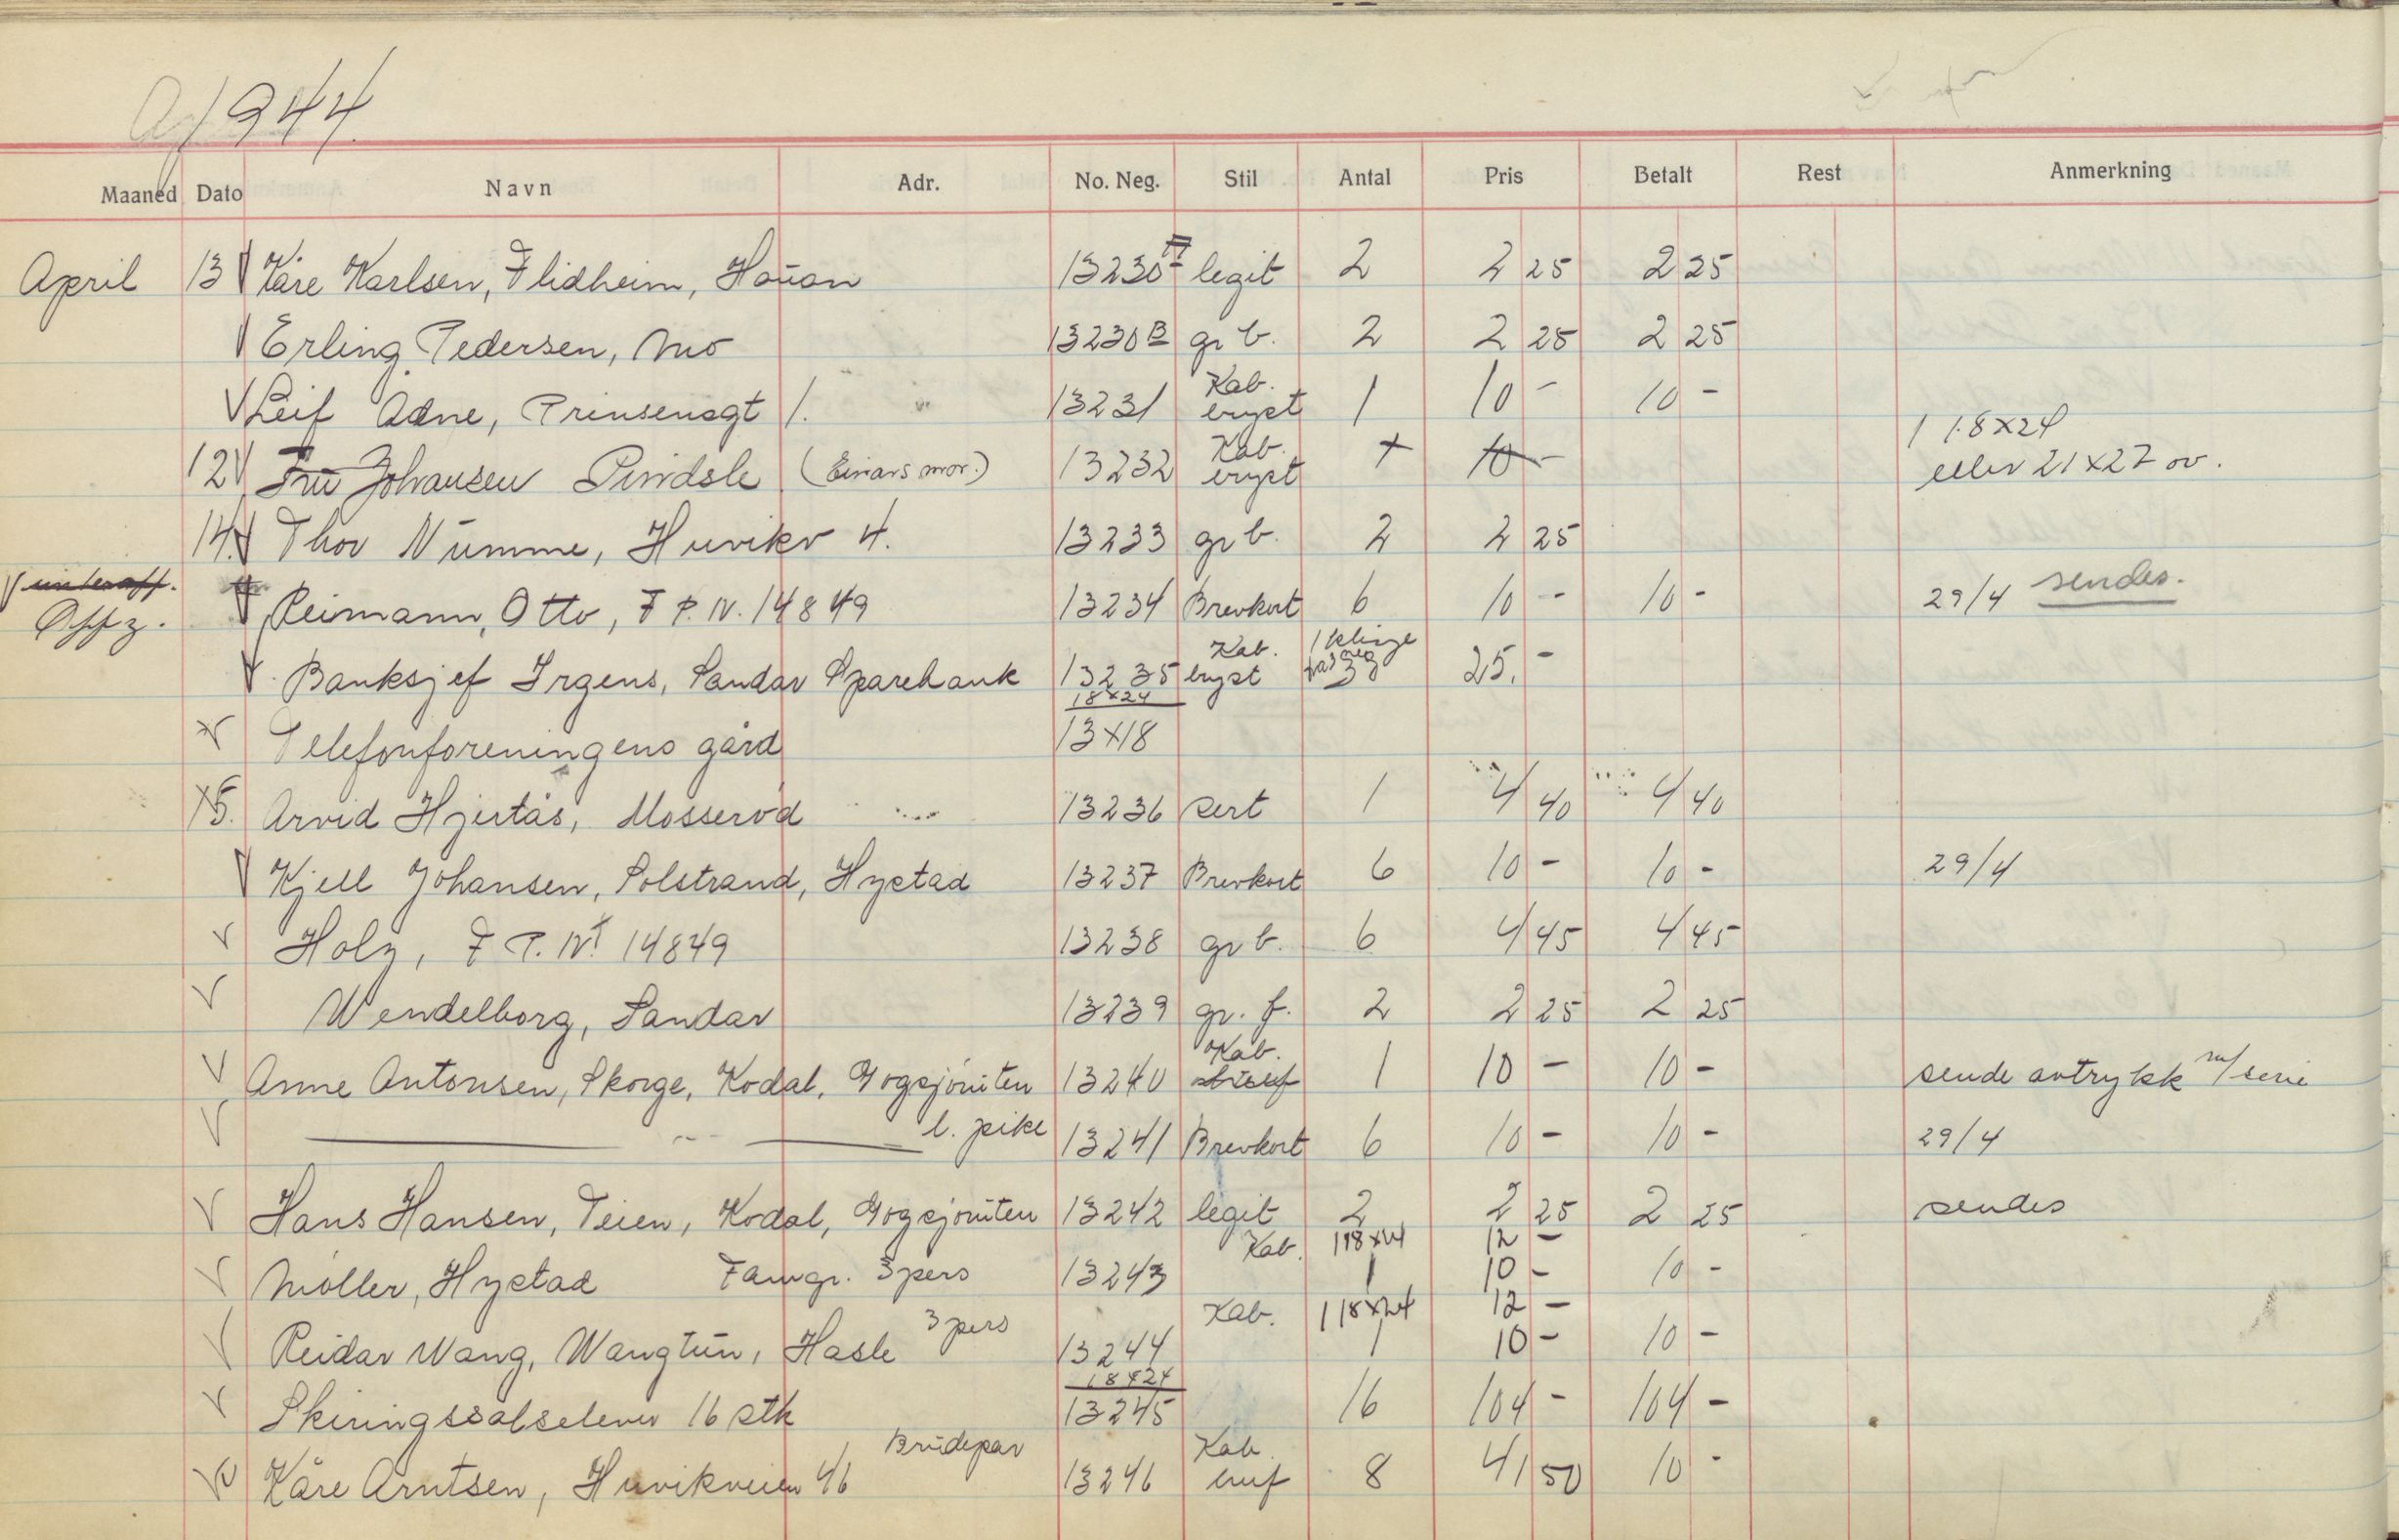 1944
Maaned Dato Navn Adr. No. Neg. Stil Antal Pris Betalt Rest Anmerkning
April 13 Kåre Karlsen, Flidheim, Hauan 13230 legit 2 2 25 2 25
Erling Pedersen, Mo 13230 B gr b. 2 2 25 2 25
Kab.
Leif Adne, Prinsensgt 1. 13231 1 10 - 10 -
1 18x24
Kab.
12 Fru Johansen Pindsle (Einars mor.) 13232 10 - eller 21x27 ov.
14. Thor Numme, Huvikv 4. 13233 gr b. 2 2 25
unteroff.
Offz. Reimann, Otto, F P. N. 14849 13234 Brevkort 6 10 - 10 - 29/4 sendes.
Kab. 1
Banksjef Irgens, Sandar Sparebank 13235 25. -
18x24
Telefonforeningens gård 13x18
15. Arvid Hjertås, Mosserød 13236 sert 1 4 40 4 40
Kjell Johansen, Solstrand, Hystad 13237 Brevkort 6 10 - 10 - 29/4
Holz, F P. Nr 14849 13238 gr b. 6 4 45 4 45
Wendelborg, Sandar 13239 gr. f. 2 2 25 2 25
Kab.
Anne Antonsen, Skorge, Kodal, Gogsjøruten 13240 1 10 - 10 - sende avtrykk m/serie
l. pike 13241 Brevkort 6 10 - 10 - 29/4
Hans Hansen, Teien, Kodal, Gogsjøruten 13242 legit 2 2 25 2 25 sendes
Kab. 1 18x24 12 -
Møller, Hystad Famgr. 3 pers 13243 1 10 - 10 -
3 pers Kab. 1 18x24 12 -
Reidar Wang, Wangtun, Hasle 13244 1 10 - 10 -
18x24
Skiringssalselever 16 stk 13245 16 104 - 104 -
Brudepar Kab.
Kåre Arntsen, Huvikveien 46 13246 8 41 50 10 -